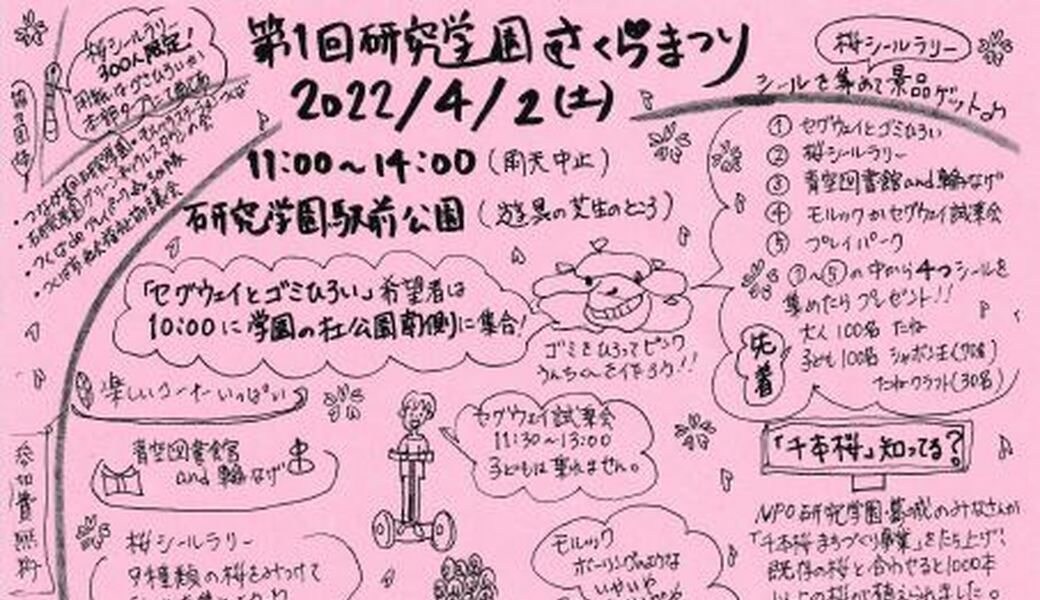 桜シールラリー
300人限定!
第1回研究学園さくらまつり
2022/4/2(土)
11:00~14:00(雨天中止)
研究学園駅前公園(遊具の芝生のところ)
「セグウェイとゴミひろい」希望者は
10:00に学園の杜公園南側に集合!
ゴミをひろってピンク
うんちくんを作ろう!!
桜シールラリー
シールを集めて景品ゲットよ
① セグウェイとゴミひろい
② 桜シールラリー
③ 青空図書館and輪なげ
④ モルックかセグウェイ試乗会
⑤ プレイパーク
①~⑤の中から4つシールを
集めたらプレゼント!!
先着
大人100名 たね
子ども100名 シャボン玉(70名)
たねクラフト(30名)
楽しいコーナーいっぱい
青空図書館
and 輪なげ
セグウェイ試乗会
11:30~13:00
子どもは乗れません。
「千本桜」知ってる?
NPO研究学園・葛城のみなさんが
「千本桜まちづくり事業」をたち上げ!
既存の桜と合わせると1000本
以上の桜が植えられました。
参加費無料
桜シールラリー
9種類の桜をみつけて
モルック
ボーリングのような
いやいや